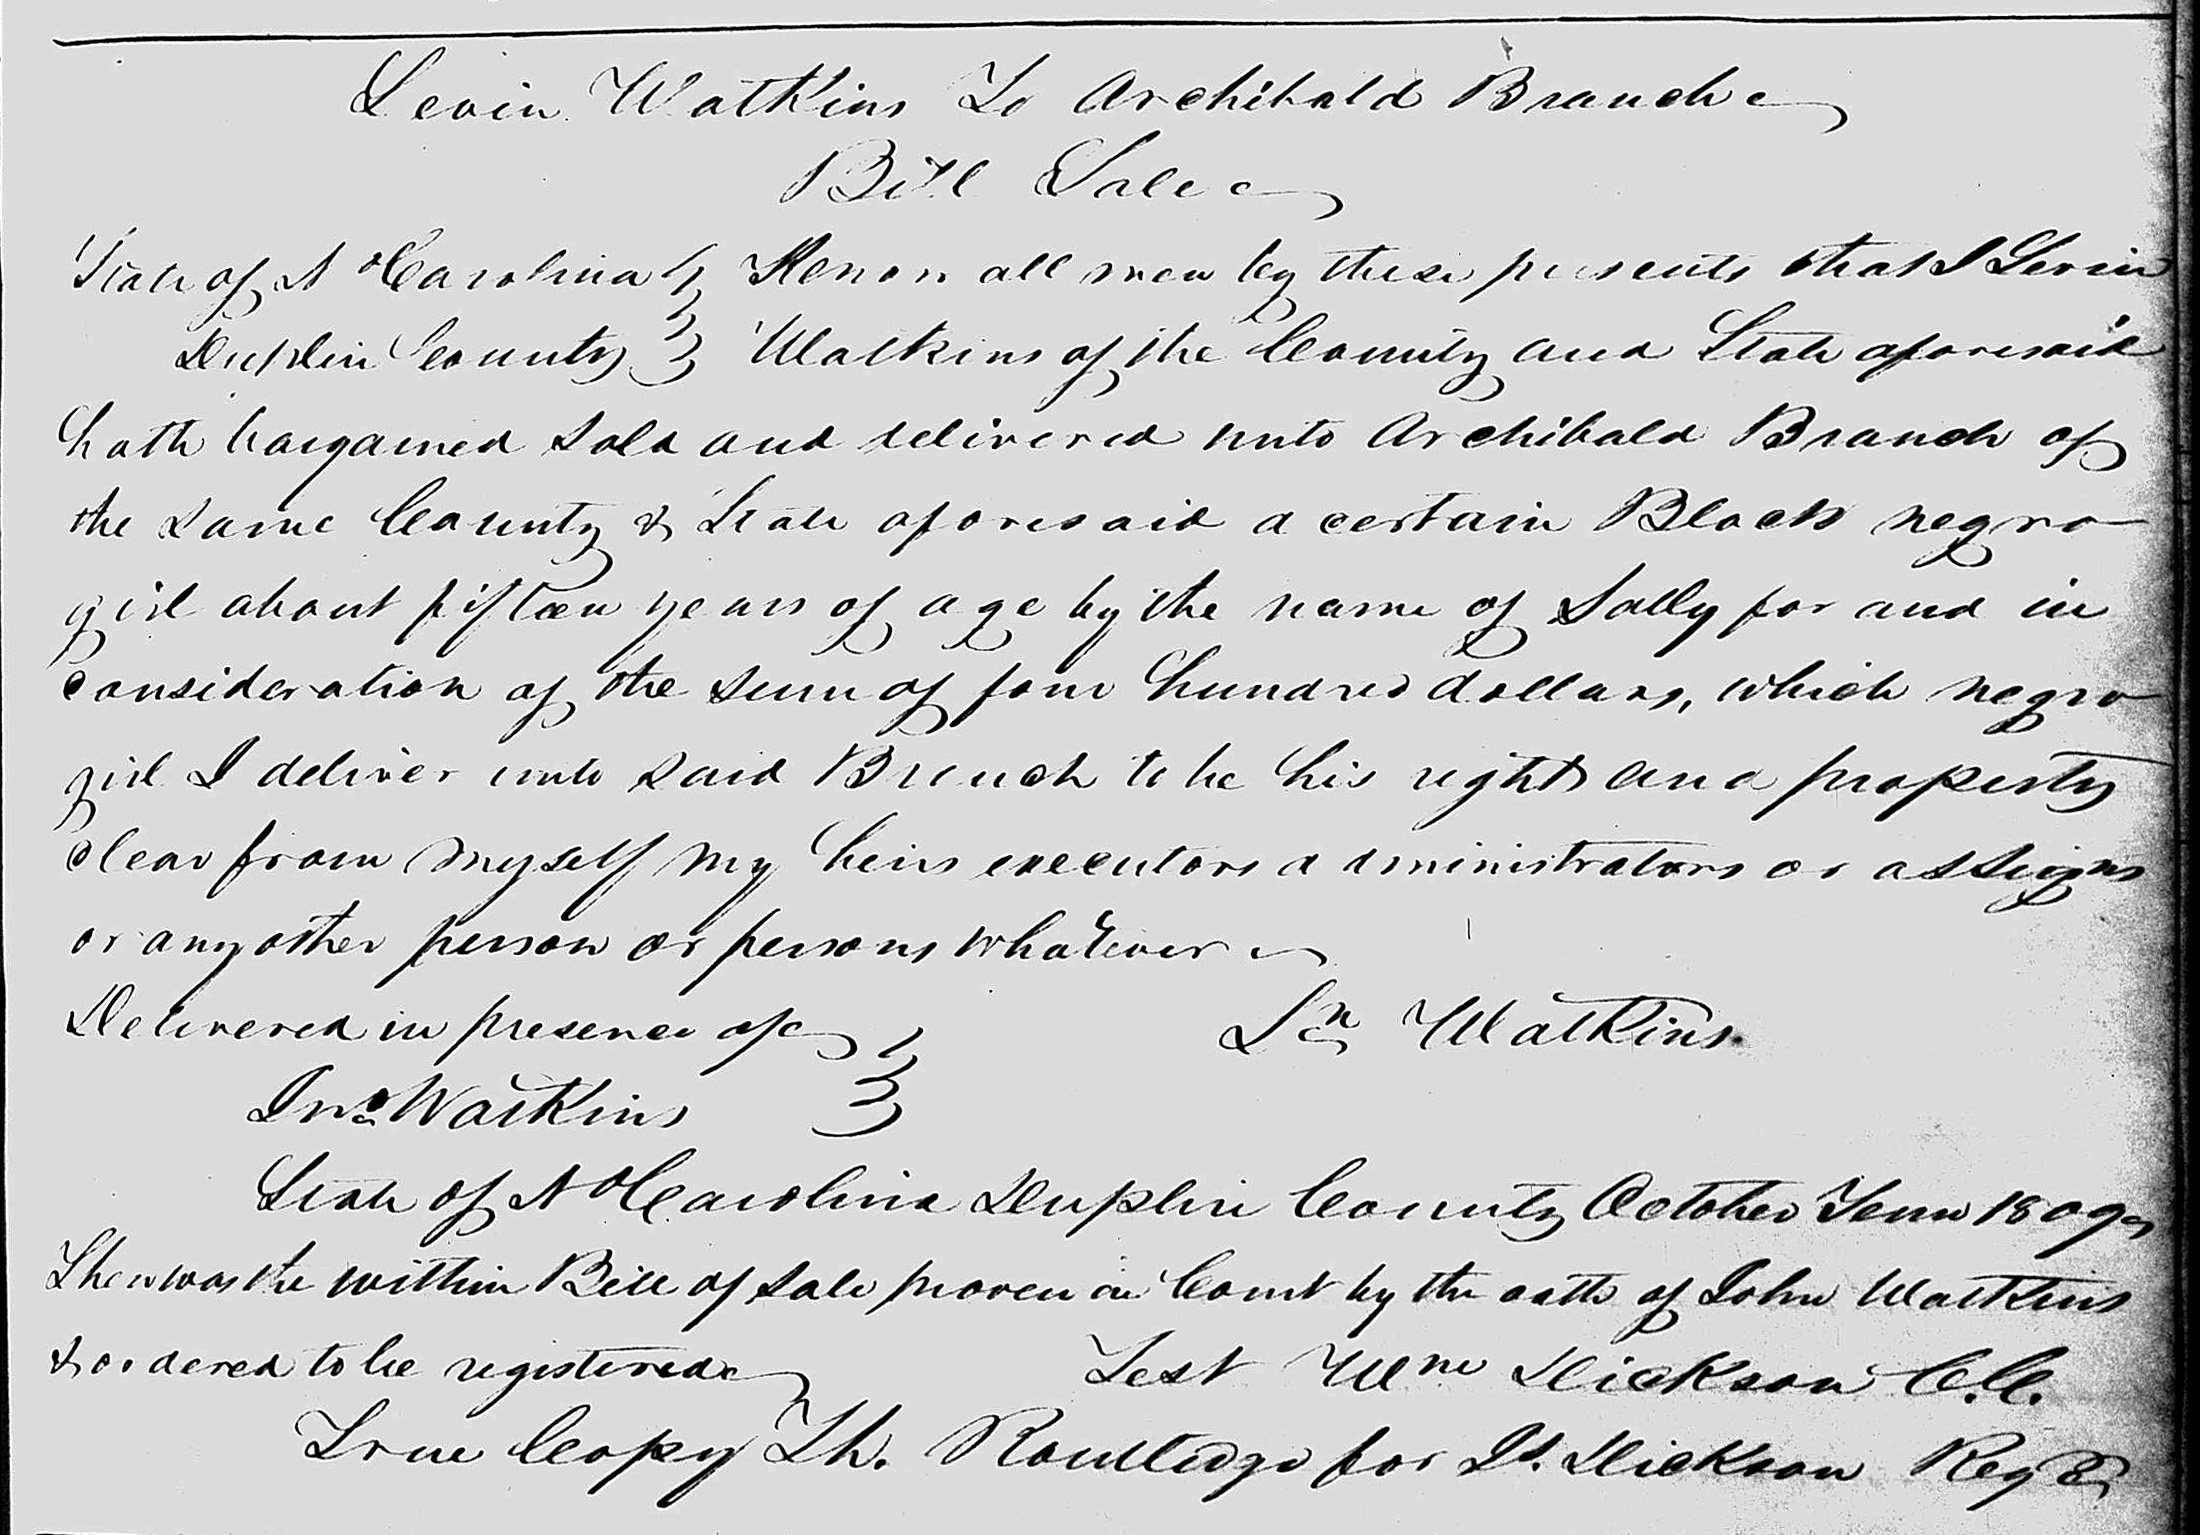 Levin Watkins To Archibald Branch
Bill Sale
State of N Carolina } Know all men by these presents that I Levin
Duplin County } Watkins of the County and State aforesaid
hath bargained sold and delivered unto Archibald Branch of
the same County & State aforesaid a certain Black negro
girl about fifteen years of age by the name of Sally for and in
consideration of the sum of four hundred dollars, which negro
girl I deliver unto said Branch to be his right and property
clear from myself my heirs executors administrators or assigns
or any other person or persons whatever
Delivered in presence of } Ln Watkins.
Jno Watkins
State of N Carolina Duplin County October Term 1809
Then was the within Bill of sale proven in Court by the oath of John Watkins
& ordered to be registered Test Wm Dickson C.C.
True Copy Th. Routledge for Dickson Reg